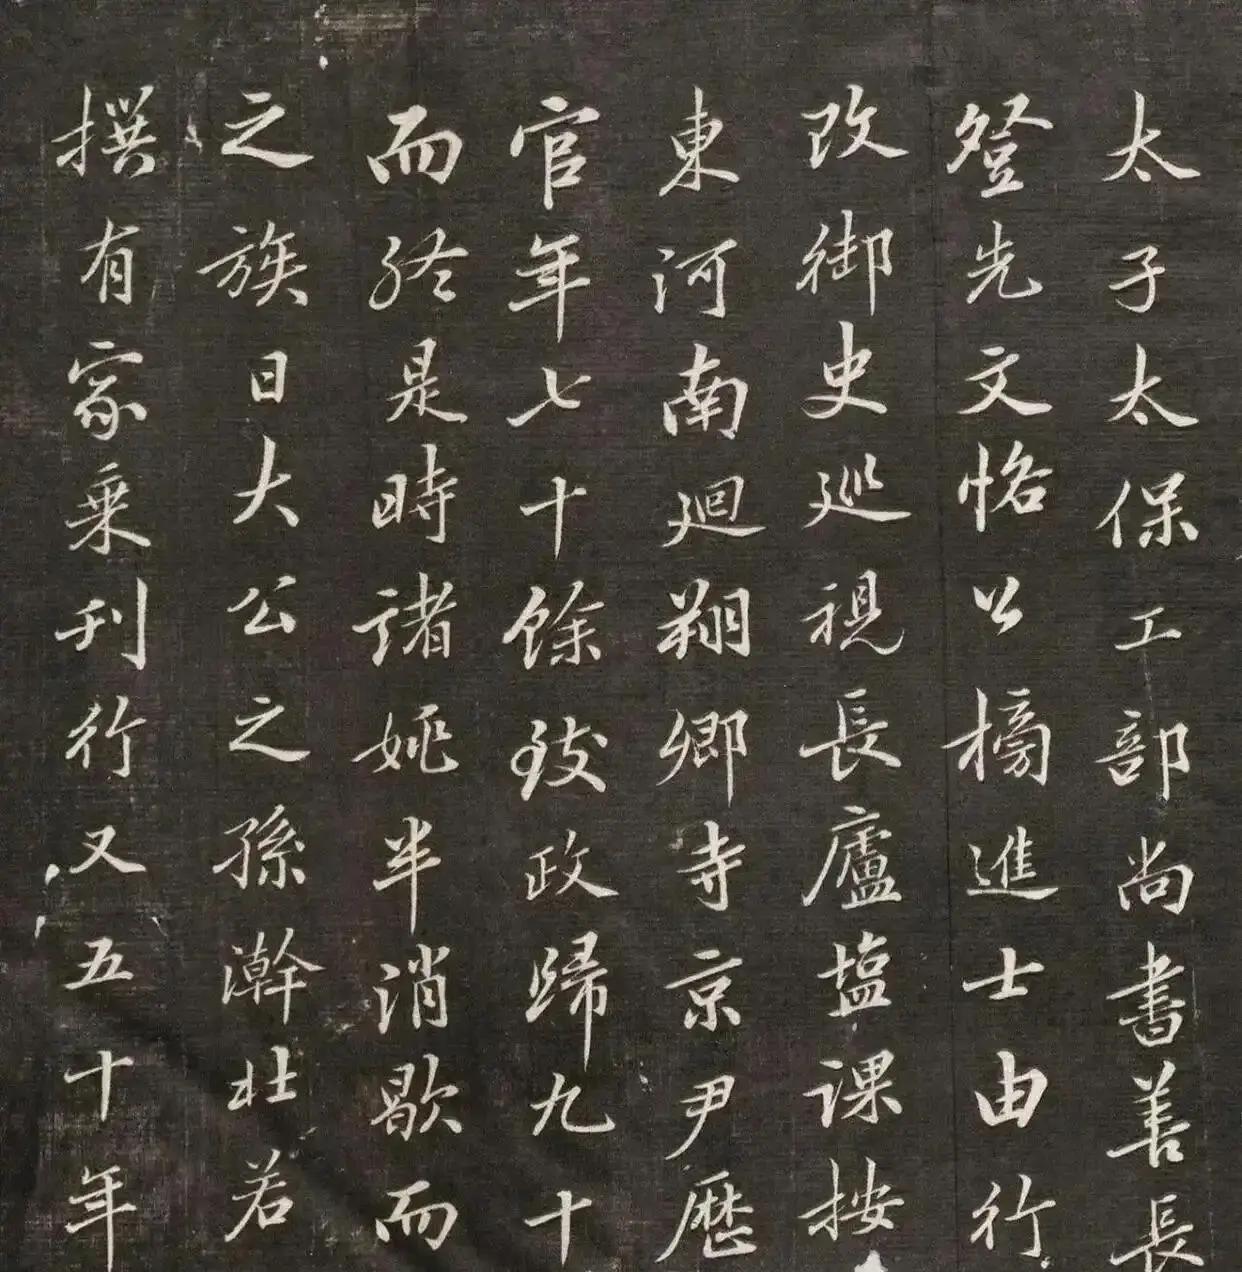 太子太保工部尚書善長
登先文恪公榜進士由行
改御史巡視長廬塩課按
東河南迴翔卿寺京尹歷
官年七十餘致政歸九十
而終是時諸姚半消歇而
之族日大公之孫澣壮若
撰有家乘刊行又五十年